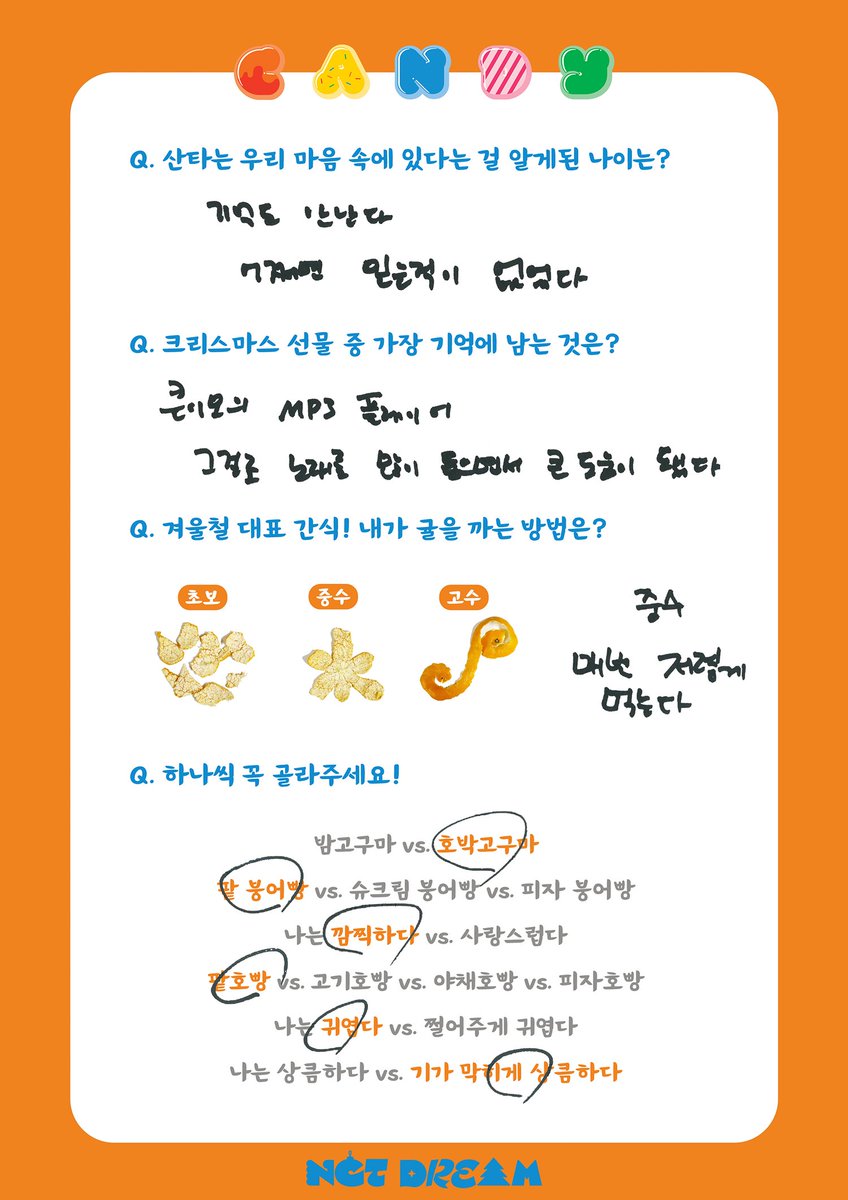 CANDY
Q. 산타는 우리 마음 속에 있다는 걸 알게된 나이는?
기억도 안난다
어쩌면 믿은적이 없었다
Q. 크리스마스 선물 중 가장 기억에 남는 것은?
큰이모의 MP3 플레이어
그걸로 노래를 많이 들으면서 큰 도움이 됐다
Q. 겨울철 대표 간식! 내가 귤을 까는 방법은?
초보 중수 고수
중수
매번 저렇게
먹는다
Q. 하나씩 꼭 골라주세요!
밤고구마 vs. 호박고구마
팥 붕어빵 vs. 슈크림 붕어빵 vs. 피자 붕어빵
나는 깜찍하다 vs. 사랑스럽다
팥호빵 vs. 고기호빵 vs. 야채호빵 vs. 피자호빵
나는 귀엽다 vs. 쩔어주게 귀엽다
나는 상큼하다 vs. 기가 막히게 상큼하다
NCT DREAM